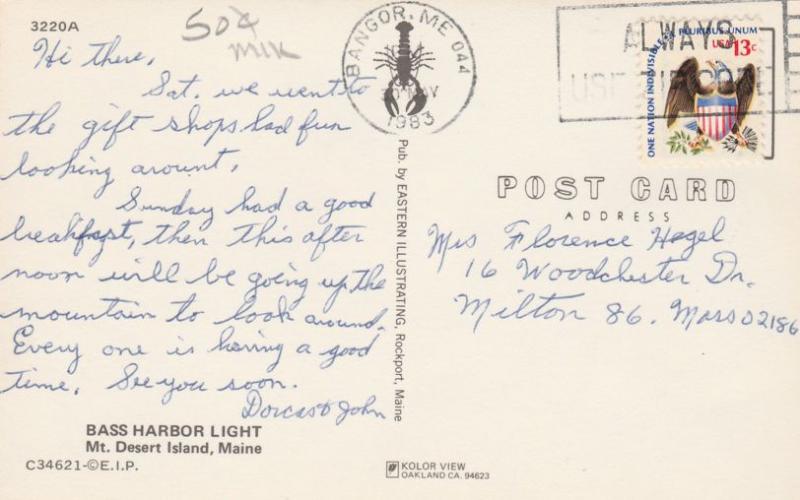 3220A
50¢
Hi there,
Sat. we went to
the gift shops had fun
looking around.
Sunday had a good
breakfast, then this after
noon will be going up the
mountain to look around.
Every one is having a good
time. See you soon.
Dorcas & John
BASS HARBOR LIGHT
Mt. Desert Island, Maine
C34621-©E.I.P.
Pub. by EASTERN ILLUSTRATING, Rockport, Maine
KOLOR VIEW
OAKLAND CA. 94623
BANGOR, ME 044
MAY
1983
ALWAYS
USE ZIP CODE
ONE NATION INDIVISIBLE
E PLURIBUS UNUM
USA 13c
POST CARD
ADDRESS
Mrs Florence Hagel
16 Woodchester Dr.
Milton 86. Mass 02186